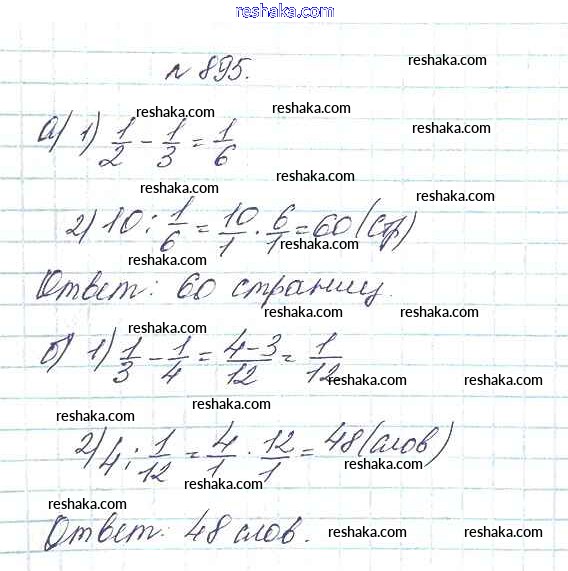 reshaka.com
№ 895. reshaka.com
reshaka.com reshaka.com
а) 1) 1/2 - 1/3 = 1/6 reshaka.com
reshaka.com reshaka.com
2) 10 : 1/6 = 10/1 · 6/1 = 60 (стр)
reshaka.com reshaka.com
Ответ: 60 страниц.
reshaka.com reshaka.com
б) 1) 1/3 - 1/4 = (4-3)/12 = 1/12
reshaka.com reshaka.com
reshaka.com reshaka.com
2) 4 : 1/12 = 4/1 · 12/1 = 48 (слов)
reshaka.com reshaka.com
reshaka.com
Ответ: 48 слов.
reshaka.com reshaka.com reshaka.com